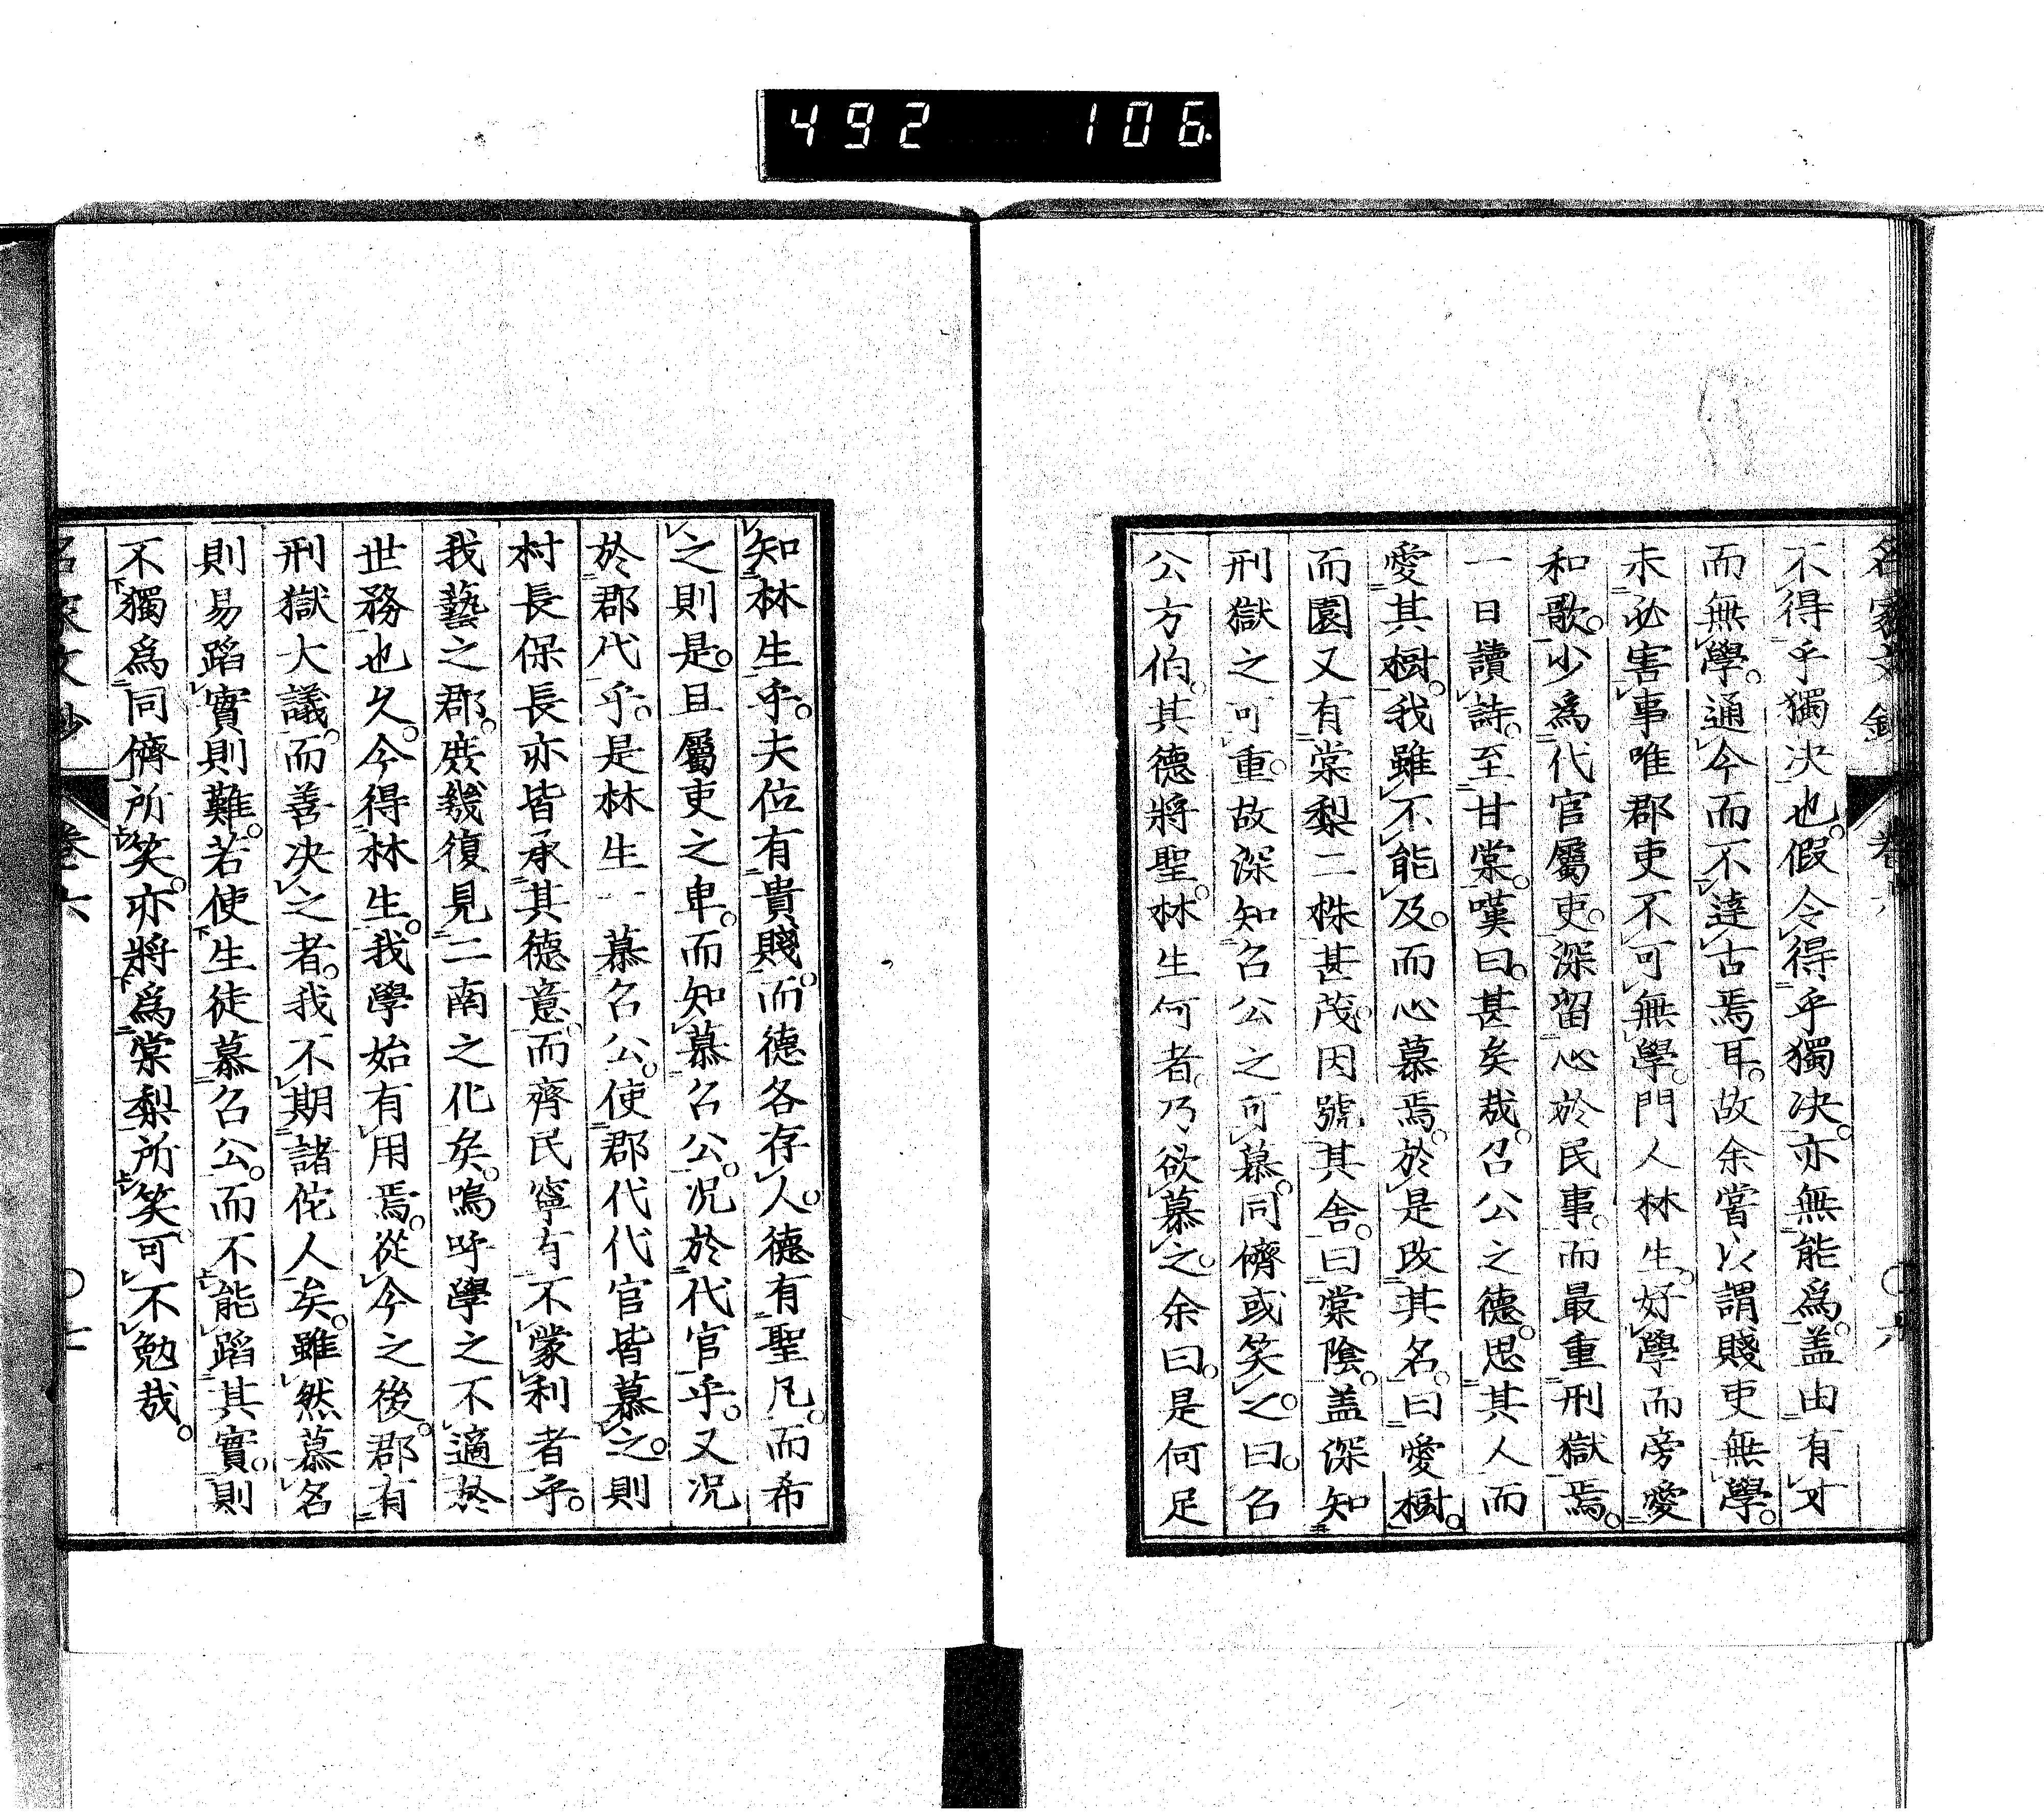 492 106
名家文鈔 卷
不得乎獨决也。假令得乎獨决。亦無能爲。盖由有才
而無學。通今而不達古焉耳。故余嘗以謂賤吏無學。
未必害事唯郡吏不可無學。門人林生。好學而旁愛
和歌。少爲代官屬吏。深留心於民事。而最重刑獄焉。
一日讀詩。至甘棠。嘆曰。甚矣哉。召公之德。思其人而
愛其樹。我雖不能及。而心慕焉。於是改其名。曰愛樹。
而園又有棠梨二株甚茂。因號其舍。曰棠陰。盖深知
刑獄之可重。故深知召公之可慕。同儕或笑之。曰。召
公方伯。其德將聖。林生何者。乃欲慕之。余曰。是何足
知林生乎。夫位有貴賤。而德各存人。德有聖凡。而希
之則是。且屬吏之卑。而知慕召公。况於代官乎。又况
於郡代乎。是林生一慕召公。使郡代代官皆慕之。則
村長保長亦皆承其德意。而齊民寧有不蒙利者乎。
我藝之郡。庻幾復見二南之化矣。嗚呼學之不適於
世務也久。今得林生。我學始有用焉。從今之後。郡有
刑獄大議。而善决之者。我不期諸佗人矣。雖然慕名
則易。蹈實則難。若使生徒慕召公。而不能蹈其實。則
不獨爲同儕所笑。亦將爲棠梨所笑。可不勉哉。
名家文鈔 卷六